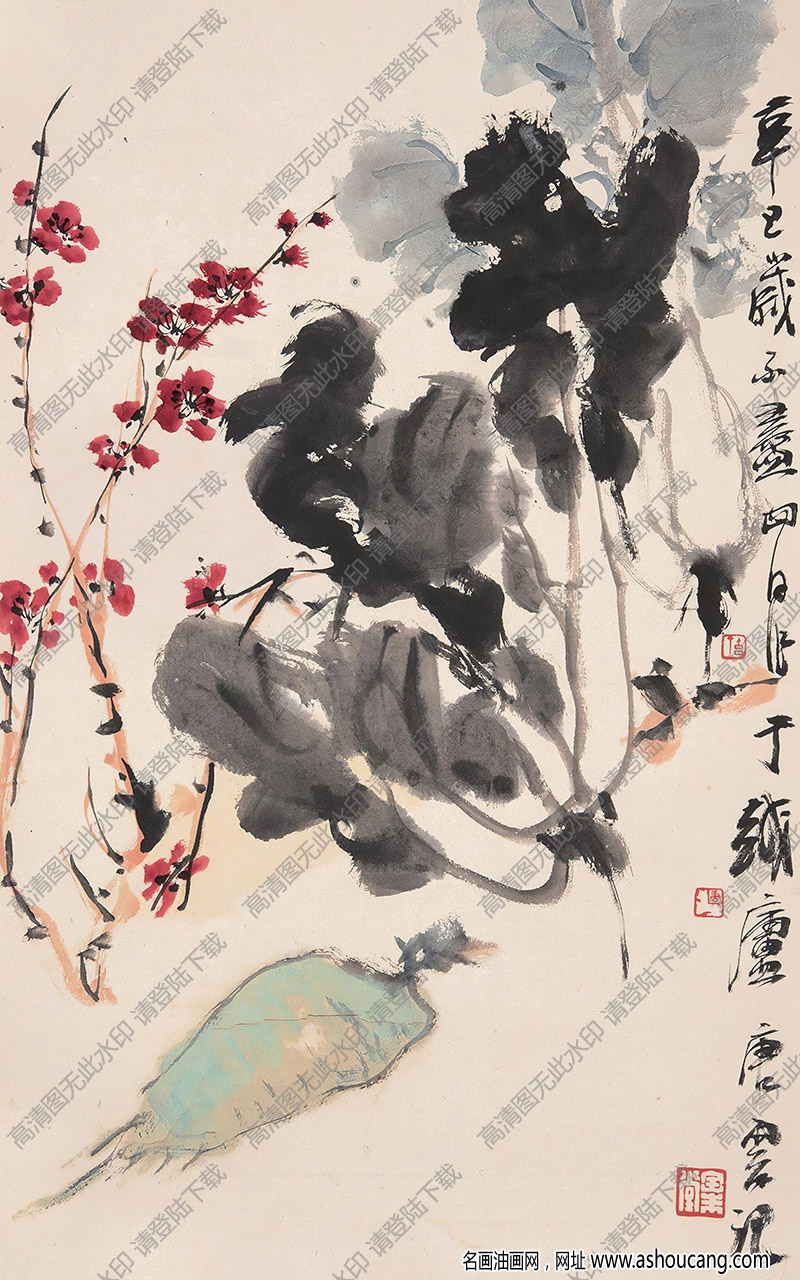 辛巳歲不盡四日作于鐵廬唐雲記
高清图无此水印 请登陆下载
名画油画网，网址 www.ashoucang.com